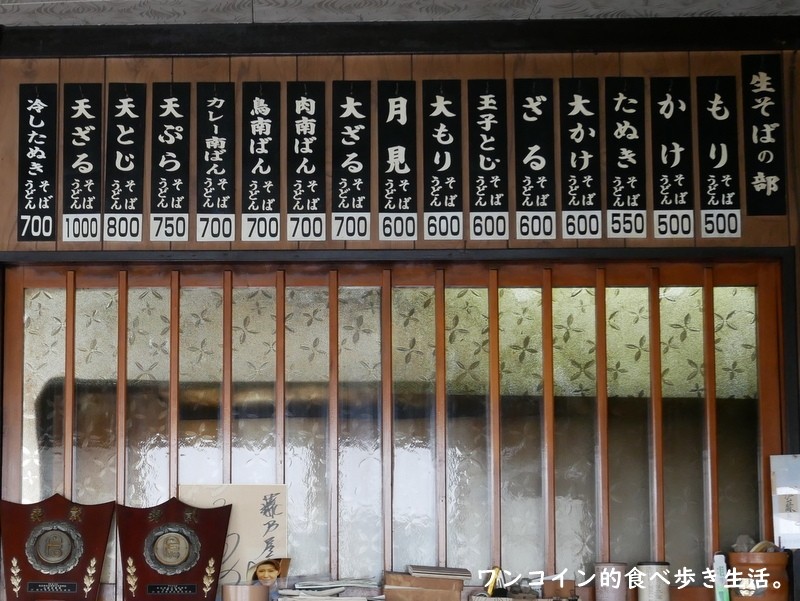 生そばの部
もり そば うどん 500
かけ そば うどん 500
たぬき そば うどん 550
大かけ そば うどん 600
ざる そば うどん 600
玉子とじ そば うどん 600
大もり そば うどん 600
月見 そば うどん 600
大ざる そば うどん 700
肉南ばん そば うどん 700
鳥南ばん そば うどん 700
カレー南ばん そば うどん 700
天ぷら そば うどん 750
天とじ そば うどん 800
天ざる そば うどん 1000
冷したぬき そば うどん 700
ワンコイン的食べ歩き生活。